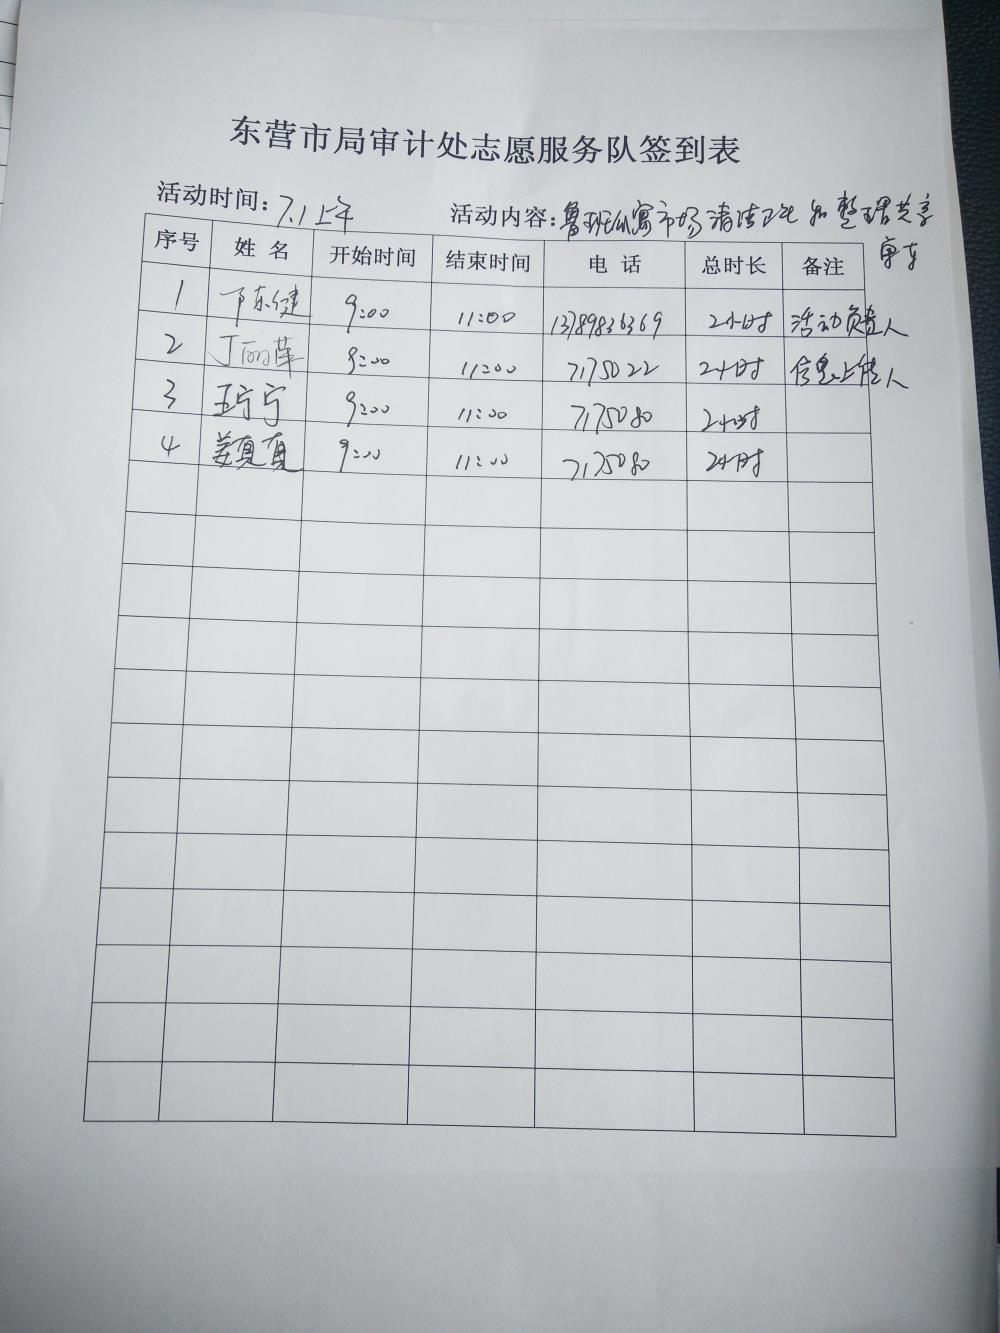 东营市局审计处志愿服务队签到表
活动时间：7.1上午 活动内容：鲁班公寓市场清洁卫生和整理共享
单车
序号 姓名 开始时间 结束时间 电话 总时长 备注
1 卞东健 9:00 11:00 13789836369 2小时 活动负责人
2 丁丽萍 9:00 11:00 7175022 2小时 信息上传人
3 王宁宁 9:00 11:00 7175080 2小时
4 姜真真 9:00 11:00 7175080 2小时